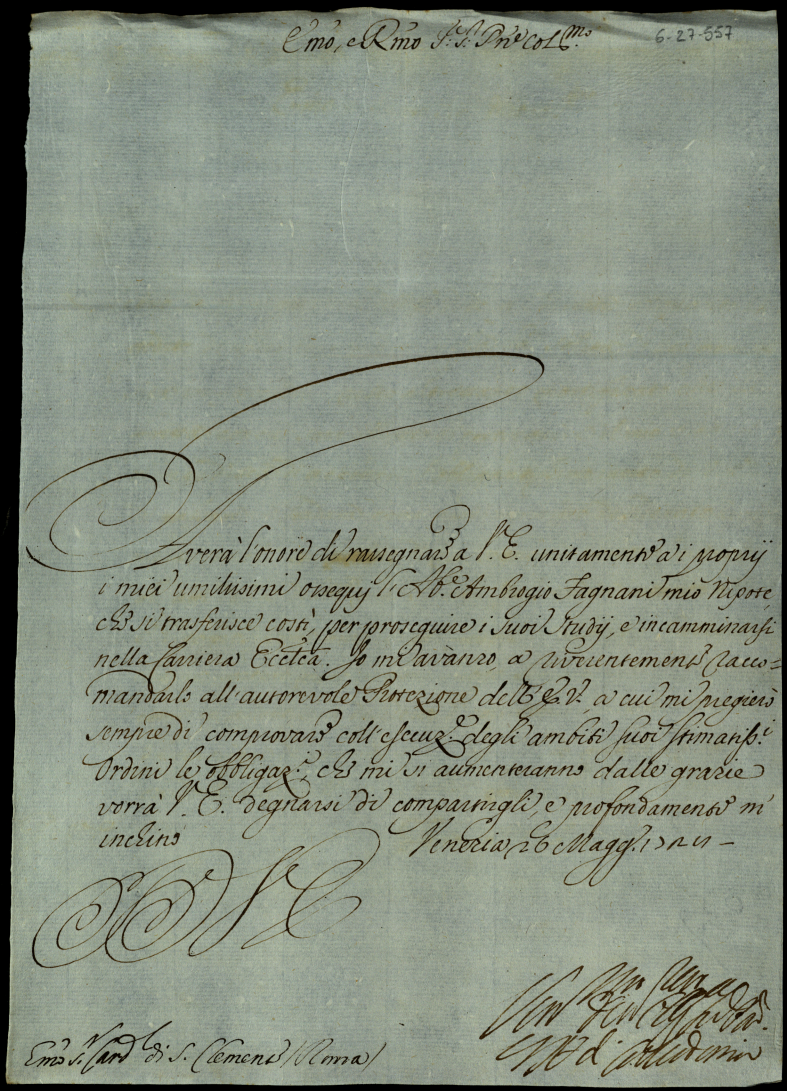 Emo, e Rmo S.r S.r Pne Col.mo
6-27-557
Averà l'onore di rassegnare a V.E. unitamente a i proprij
i miei umilissimi ossequij l'Ab.e Ambrogio Fagnani mio Nipote,
che si trasferisce costì, per proseguire i suoi Studij, e incamminarsi
nella Carriera Eccl.ca. Io mi avanzo, a riverentemente racco=
mandarlo all'autorevole Protezione dell'E.V. a cui mi pregierò
sempre di comprovare coll'esecuz.e degli ambiti suoi stimatiss.i
Ordini le obbligaz.i, che mi si aumenteranno dalle grazie
vorrà V.E. degnarsi di compartirgli, e profondamente m'
inchino
Venezia 26 Magg.o
Di V.E.
Emo S.r Card.l di S. Clemente (Roma)